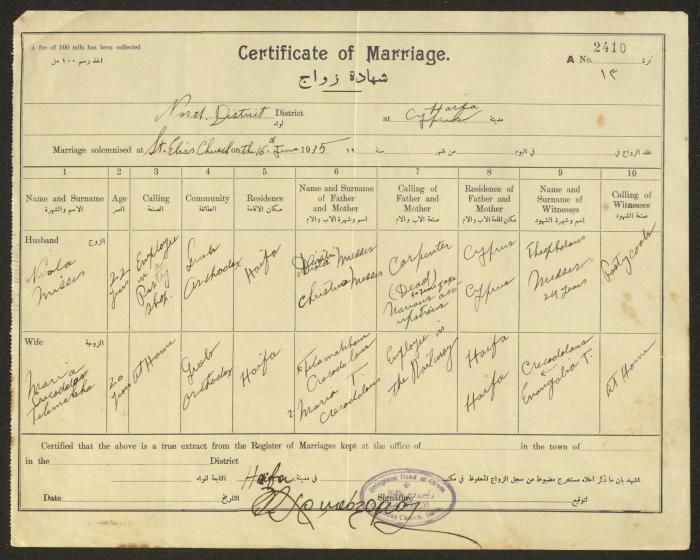 A fee of 100 mils has been collected
اخذ رسم ١٠٠ مل
Certificate of Marriage.
شهادة زواج
A No. 2410 نمرة
١٣
North District District لواء at Haifa مدينة
Cyprus
Marriage solemnised at St. Elias Church on th 16 June 1935 سنة من شهر في اليوم عقد الزواج في
1 2 3 4 5 6 7 8 9 10
Name and Surname Age Calling Community Residence Name and Surname of Father and Mother Calling of Father and Mother Residence of Father and Mother Name and Surname of Witnesses Calling of Witnesses
الاسم والشهرة العمر الصنعة الطائفة مكان الاقامة اسم وشهرة الاب والام صنعة الاب والام مكان اقامة الاب والام اسم وشهرة الشهود صنعة الشهود
Husband الزوج
Nicola Misses
22 years
Employee in a Pastry Shop.
Greek Orthodox
Haifa
Misses
Christina Misses
Carpenter
(Dead)
Cyprus
Cyprus
Misses
24 years
Pastrycook
Wife الزوجة
Maria
20 years
At Home
Greek Orthodox
Haifa
Maria T.
Employee in the Railway
Haifa
Haifa
T.
At Home
Certified that the above is a true extract from the Register of Marriages kept at the office of in the town of
in the District
Haifa
اشهد بان ما ذكر اعلاه مستخرج مضبوط من سجل الزواج المحفوظ في مكتب
في مدينة التابعة للواء
Date التاريخ Signature لتوقيع
Religious Head of Greek
Church, Haifa